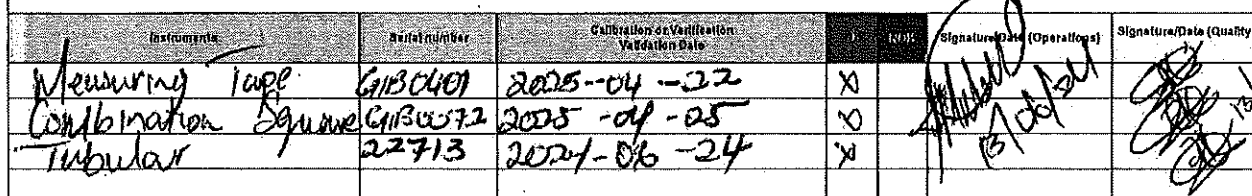 Instruments Serial number Calibration or Verification Validation Date Signature/Date (Operations) Signature/Date (Quality
Measuring Tape GIB0401 2025-04-22 X
Combination Square GIB0072 2025-04-05 X
Tubular 22713 2024-06-24 X